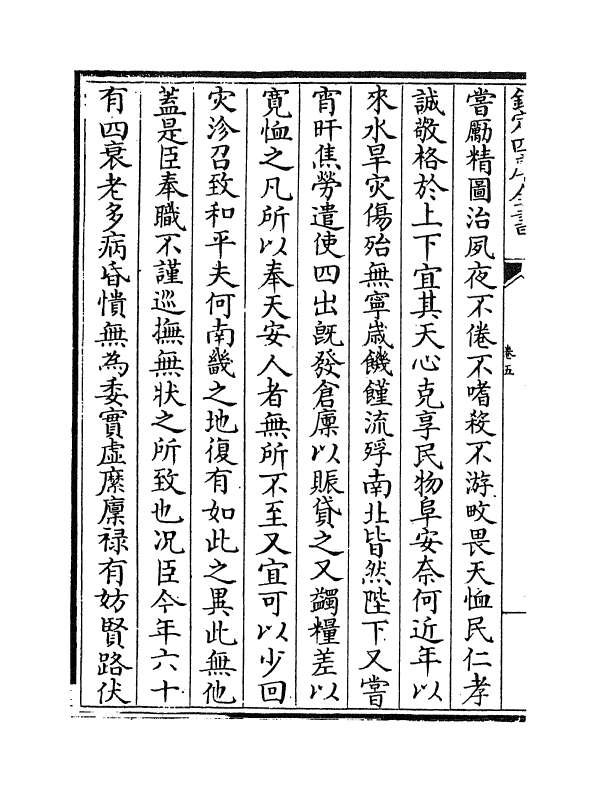 欽定四庫全書
卷五
嘗勵精圖治夙夜不倦不嗜殺不游畋畏天恤民仁孝
誠敬格於上下宜其天心克享民物阜安奈何近年以
來水旱灾傷殆無寧歲饑饉流殍南北皆然陛下又嘗
宵旰焦勞遣使四出既發倉廩以賑貸之又蠲糧差以
寛恤之凡所以奉天安人者無所不至又宜可以少回
灾沴召致和平夫何南畿之地復有如此之異此無他
蓋是臣奉職不謹巡撫無狀之所致也况臣今年六十
有四衰老多病昏憒無為委實虚縻廩禄有妨賢路伏